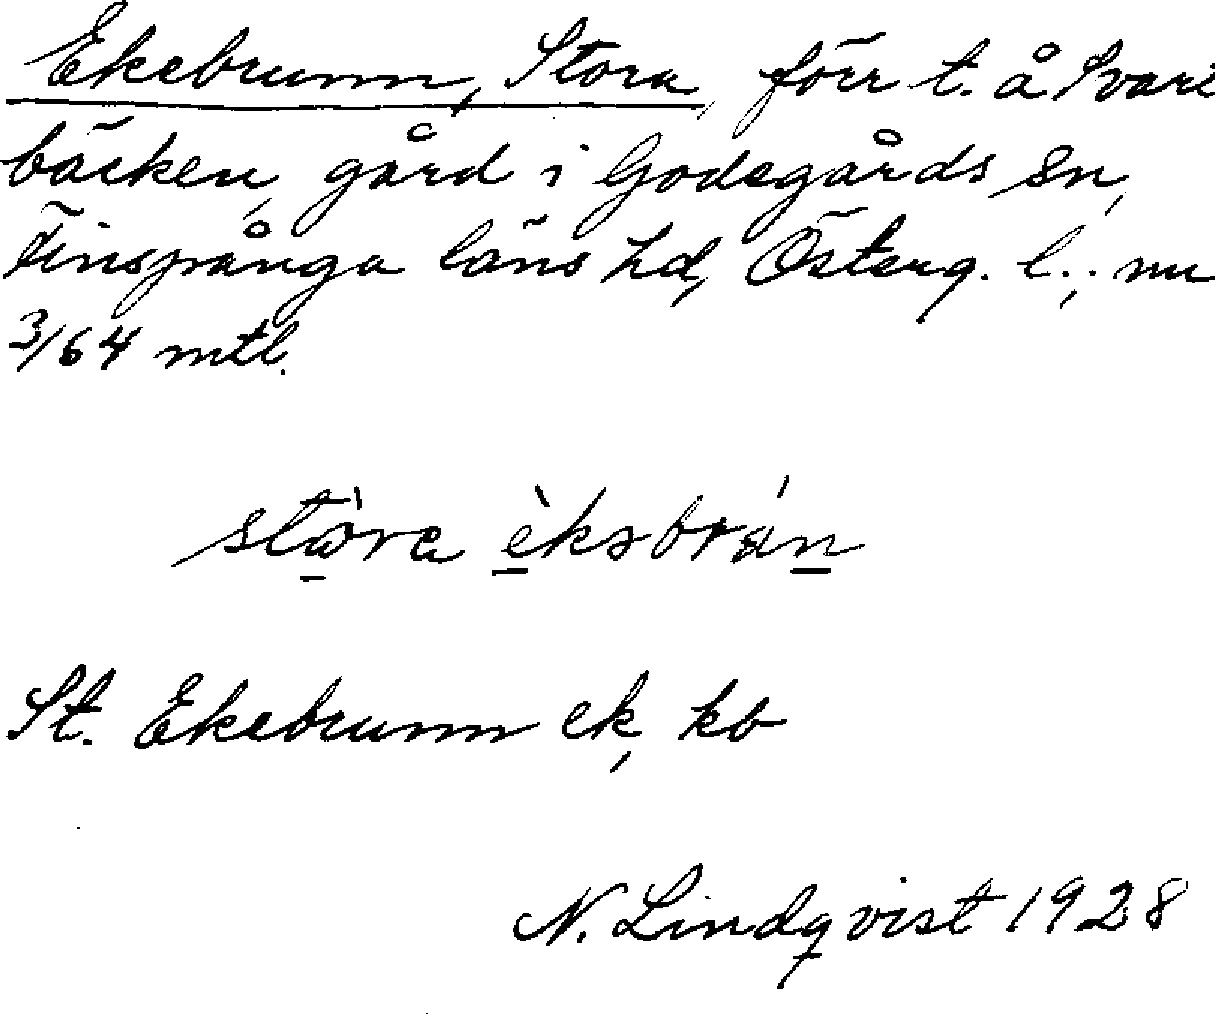 Ekebrunn, Stora, förr t. å Svart
bäcken, gård i Godegårds sn,
Finspånga läns hd, Österg. l.; nu
3/64 mtl.
stòra èkəbrán
St. Ekebrunn ek, kb
N. Lindqvist 1928